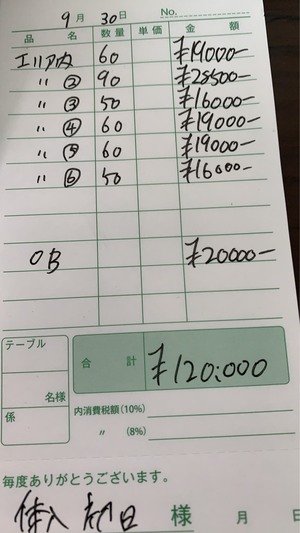 9月 30日 No.
品名 数量 単価 金額
エリア内 60 ¥19000-
〃 ② 90 ¥28500-
〃 ③ 50 ¥16000-
〃 ④ 60 ¥19000-
〃 ⑤ 60 ¥19000-
〃 ⑥ 50 ¥16000-
OB ¥20000-
テーブル
名様
係
合計 ¥120:000
内消費税額(10%)
〃 (8%)
毎度ありがとうございます。
体入 初日 様 月 日